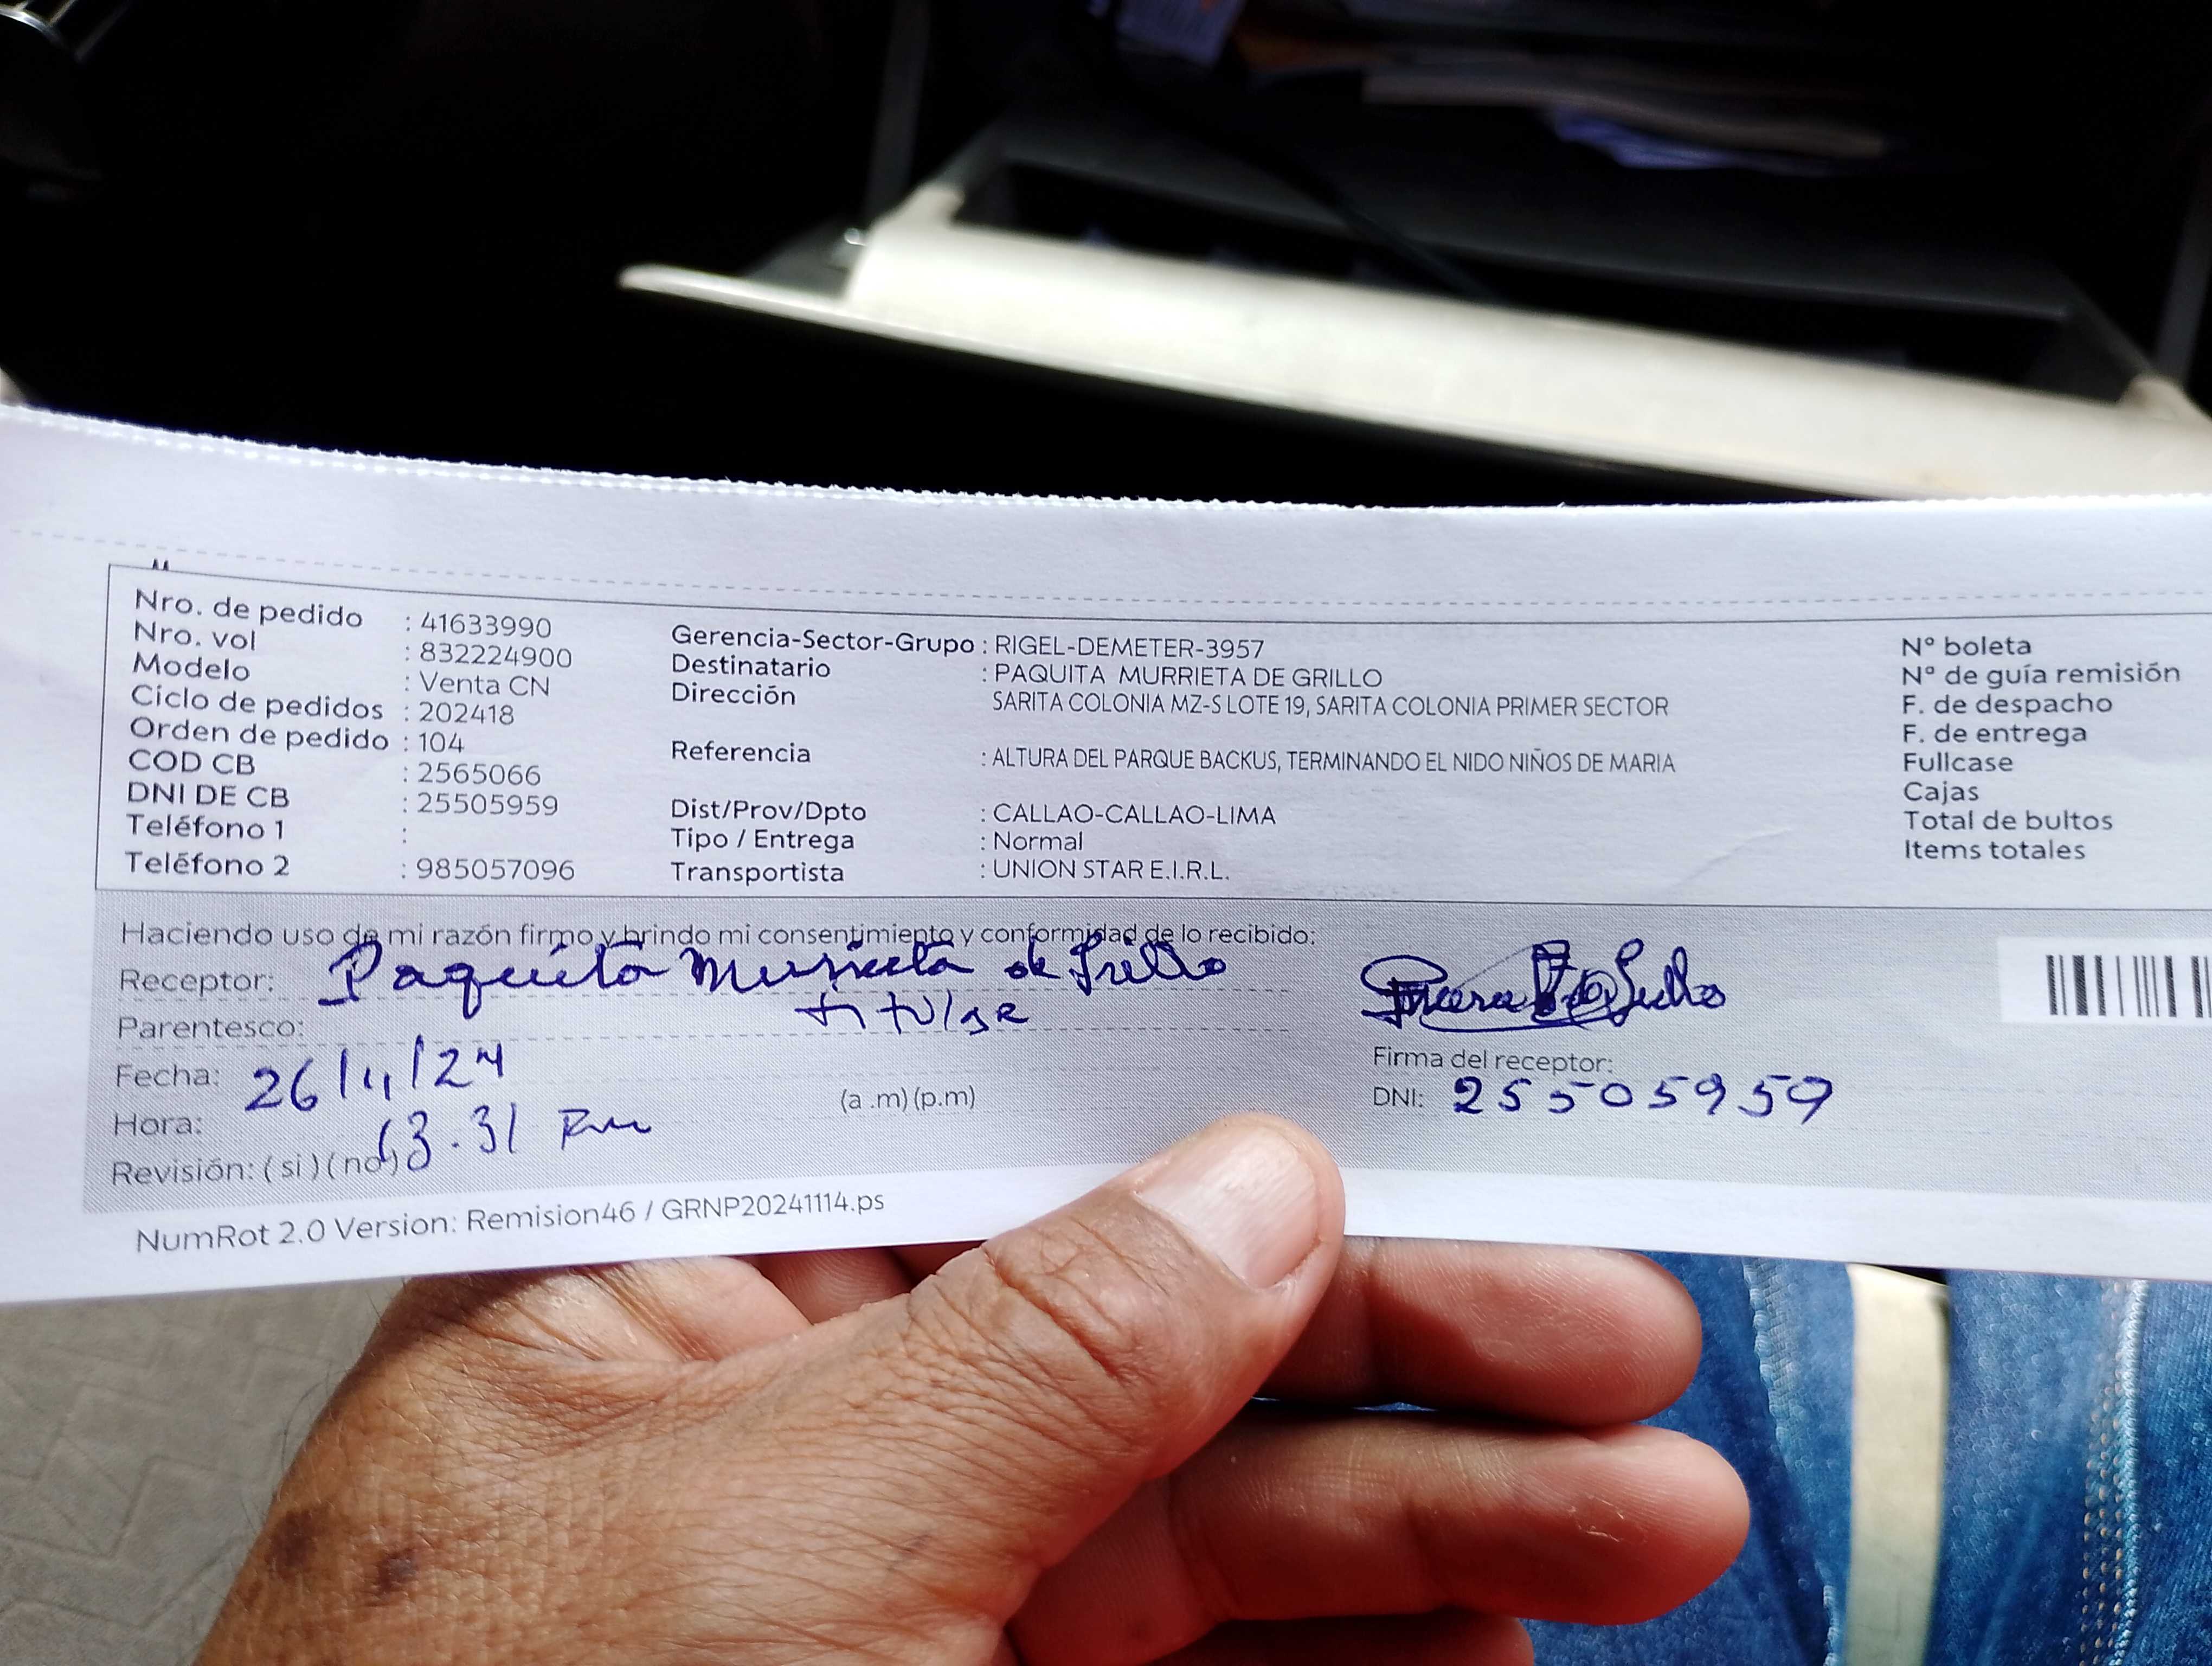 Nro. de pedido : 41633990
Nro. vol : 832224900
Modelo : Venta CN
Ciclo de pedidos : 202418
Orden de pedido : 104
COD CB : 2565066
DNI DE CB : 25505959
Teléfono 1 :
Teléfono 2 : 985057096
Gerencia-Sector-Grupo : RIGEL-DEMETER-3957
Destinatario : PAQUITA MURRIETA DE GRILLO
Dirección SARITA COLONIA MZ-S LOTE 19, SARITA COLONIA PRIMER SECTOR
Referencia : ALTURA DEL PARQUE BACKUS, TERMINANDO EL NIDO NIÑOS DE MARIA
Dist/Prov/Dpto : CALLAO-CALLAO-LIMA
Tipo / Entrega : Normal
Transportista : UNION STAR E.I.R.L.
N° boleta
N° de guía remisión
F. de despacho
F. de entrega
Fullcase
Cajas
Total de bultos
Items totales
Haciendo uso de mi razón firmo y brindo mi consentimiento y conformidad de lo recibido:
Receptor: Paquita Murrieta de Grillo
Parentesco: titular
Fecha: 26/11/24
Hora: 13.31 Pm (a .m) (p.m)
Revisión: ( si ) ( no )
Firma del receptor:
DNI: 25505959
NumRot 2.0 Version: Remision46 / GRNP20241114.ps